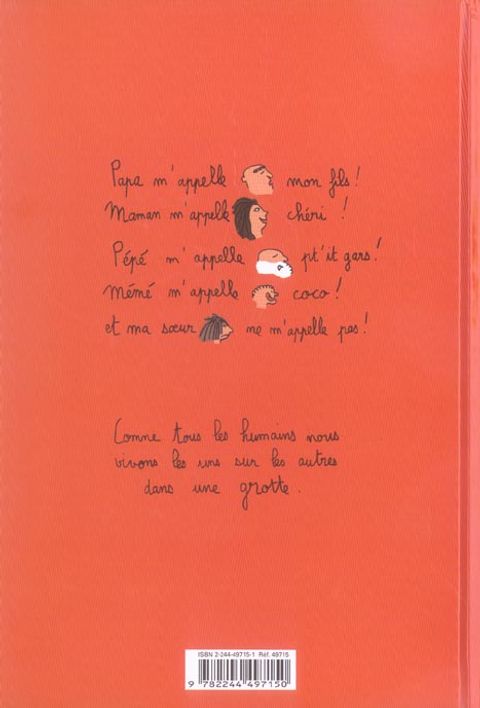 Papa m'appelle mon fils !
Maman m'appelle chéri !
Pépé m'appelle pt'it gars !
Mémé m'appelle coco !
et ma sœur ne m'appelle pas !
Comme tous les humains nous
vivons les uns sur les autres
dans une grotte.
ISBN 2-244-49715-1 Réf. 49715
9 782244 497150